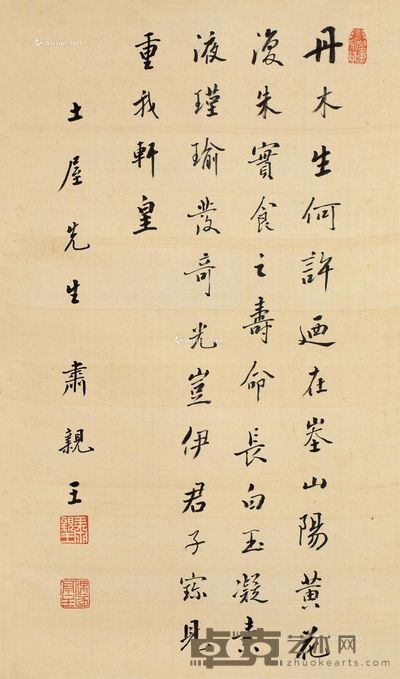 丹木生何許迺在峚山陽黃花
復朱實食之壽命長白玉凝素
液瑾瑜發奇光豈伊君子寶見
重我軒皇
土屋先生 肅親王
卓克艺术网
zhuokearts.com